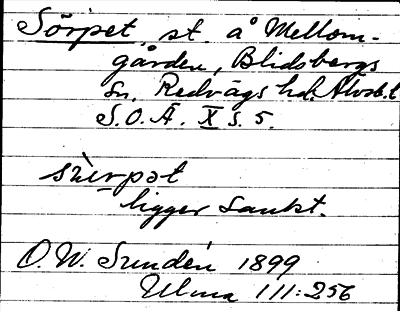 Sörpet, st. å Mellom-
gården, Blidsbergs
sn. Redvägs hd. Älvsb. l
S.O.Ä. X s. 5.
ligger sankt.
O. W. Sundén 1899
Ulma 111:256